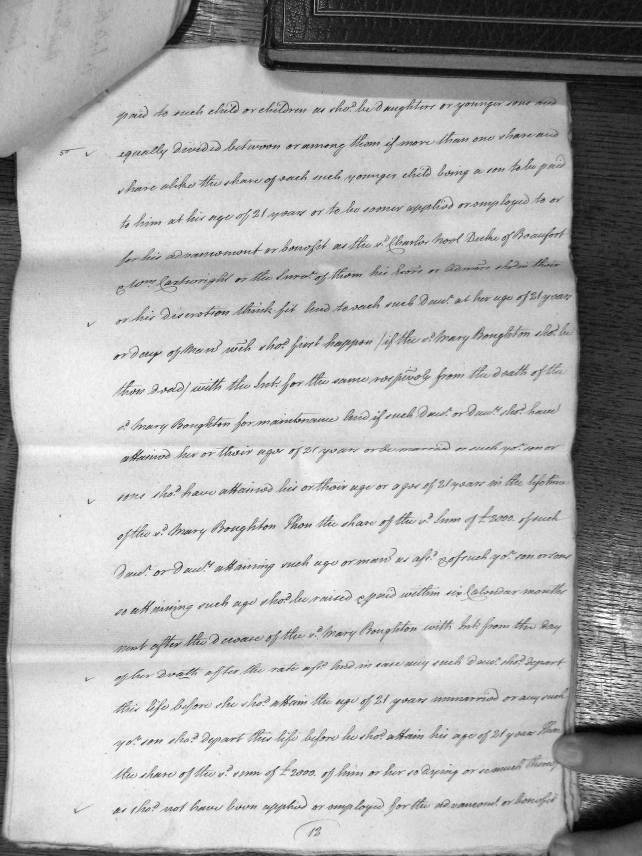 paid to such child or children as sho.d be daughters or younger sons and
equally devided between or among them if more than one share and
share alike the share of each such younger child being a son to be paid
to him at his age of 21 years or to be sooner applied or employed to or
for his advancement or benefit as the s.d Charles Noel Duke of Beaufort
& Wm Cartwright or the Surv.r of them his heirs or Admārs sho.d in their
or his discretion think fit And to each such Daur. at her age of 21 years
or day of Marr.e wch sho.d first happen (if the s.d Mary Boughton sho.d be
then dead) with the Int.t for the same respively from the death of the
s.d Mary Boughton for maintenance And if such Daur. or Daurs. sho.d have
attained her or their ages of 21 years or be married or such yo.r son or
sons sho.d have attained his or their age or ages of 21 years in the lifetime
of the s.d Mary Boughton Then the share of the s.d Sum of £2000. of such
Daur. or Daurs. attaining such age or marr.e as afs.d & of such yo.r son or sons
so attaining such age sho.d be raised & paid within six Calendar months
next after the decease of the s.d Mary Boughton with Int.t from the day
of her death after the rate afs.d And in case any such Daur. sho.d depart
this life before she sho.d attain the age of 21 years unmarried or any such
yo.r son sho.d depart this life before he sho.d attain his age of 21 years Then
the share of the s.d sum of £2000. of him or her so dying or so much thereof
as sho.d not have been applied or employed for the advancem.t or benefit
12